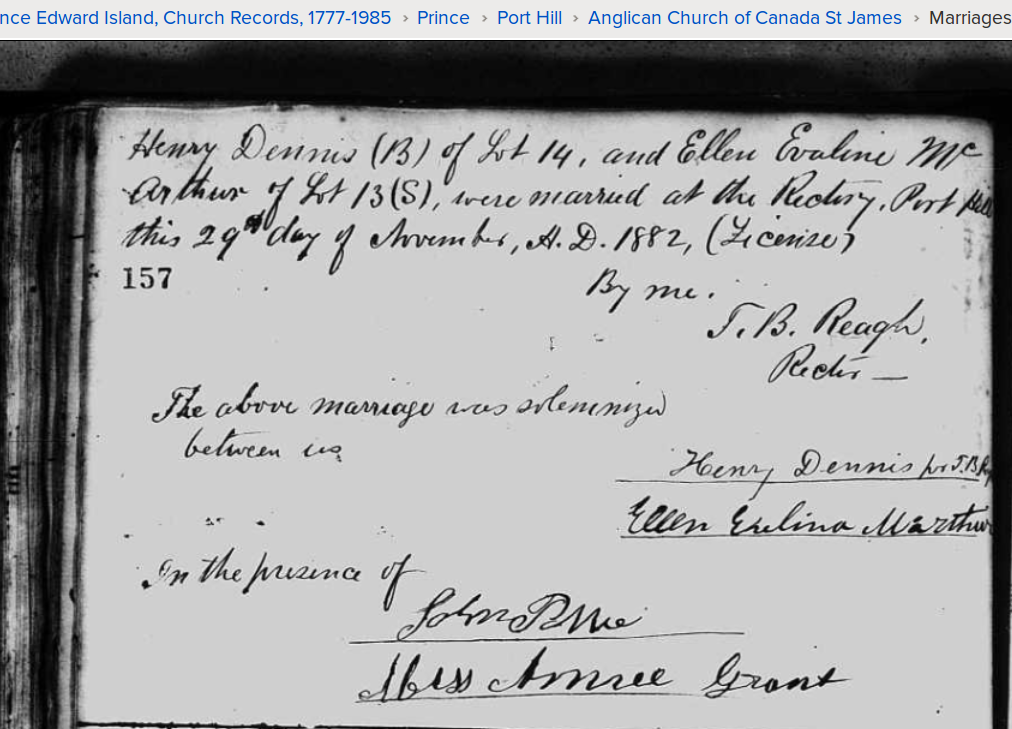 nce Edward Island, Church Records, 1777-1985 › Prince › Port Hill › Anglican Church of Canada St James › Marriages
Henry Dennis (B) of Lot 14, and Ellen Evaline Mc
Arthur of Lot 13 (S), were married at the Rectory, Port Hill
this 29th day of November, A. D. 1882, (License)
157
By me.
T. B. Reagh,
Rector —
The above marriage was solemnized
between us
Henry Dennis per T. B. R
Ellen Evelina McArthur
In the presence of
John
Miss Annie Grant